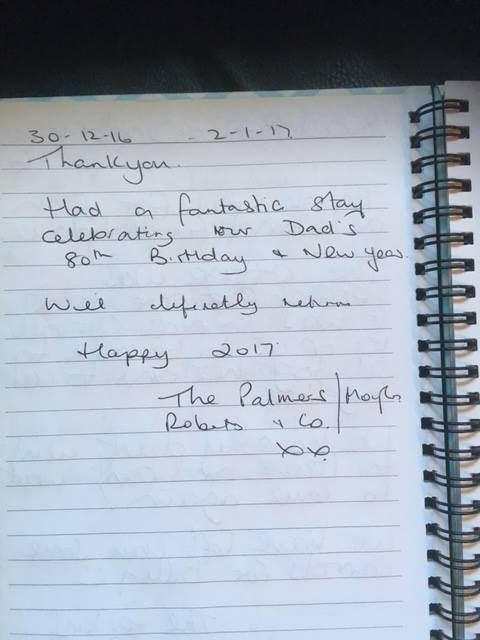 30-12-16 - 2-1-17
Thankyou.
Had a fantastic stay
celebrating our Dad's
80th Birthday & New year.
Will definetly return
Happy 2017
The Palmers
Roberts & Co.
xx